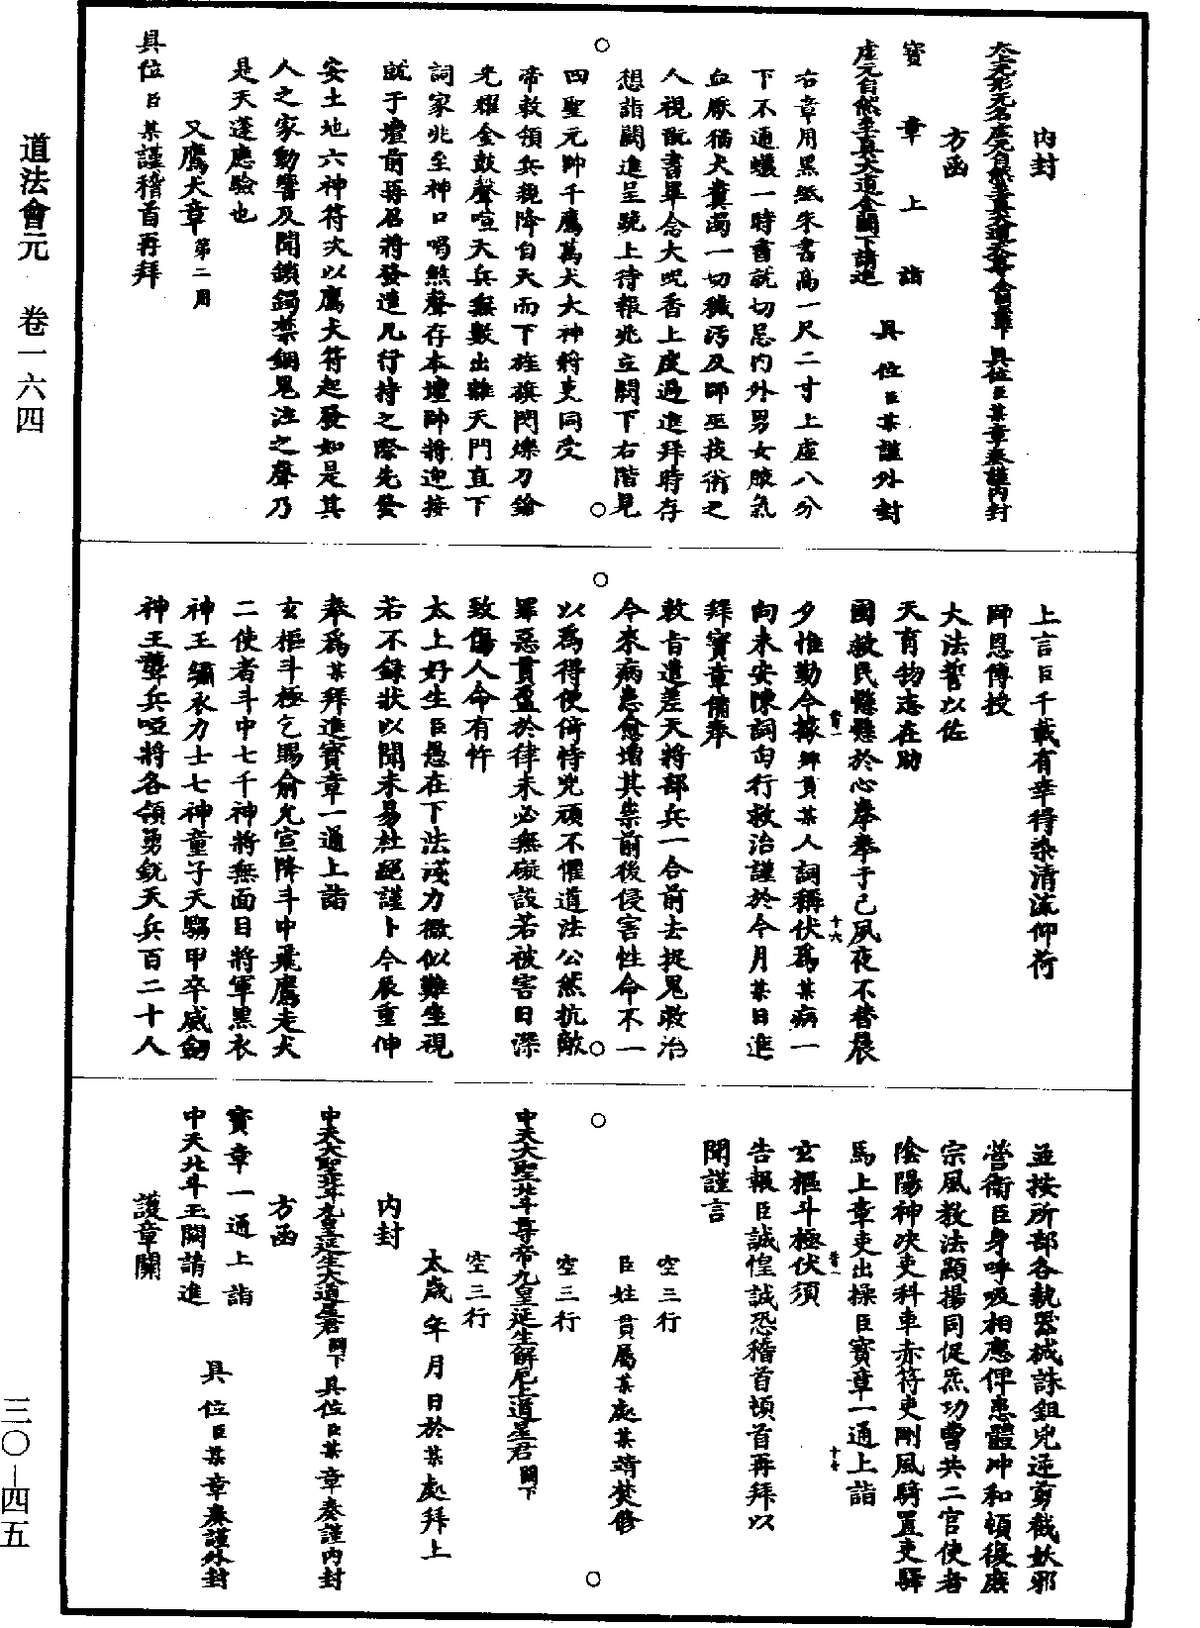 道法會元　卷一六四
三〇－四五
內封
太上无形无名虛无自然至眞大道
具位臣某章奏謹內封
方函
寶章上詣
虛无自然至真大道金闕下請進
具位臣某謹外封
右章用黑紙朱書高一尺二寸上虛八分
下不通蟻一時書就切忌內外男女腋氣
血厭猫犬糞濁一切穢污及師巫技術之
人視翫書畢念大呪香上度過進拜時存
想詣闕進呈曉上待報兆立闕下右階見
四聖元帥千鷹萬犬大神將吏同受
帝敕領兵親降自天而下旌旗閃爍刀鎗
光耀金鼓聲喧天兵無數出離天門直下
詞家兆至神口喝然聲存本壇帥將迎接
就于壇前再召將發遣凡行持之際先發
安土地六神符次以鷹犬符起發如是其
人之家動響及聞鎖鐲禁錮鬼泣之聲乃
是天蓬應驗也
又鷹犬章第二用
具位臣某謹稽首再拜
上言臣千載有幸得染清流仰荷
師恩傳授
大法誓以佐
天育物志在助
國救民懸懸於心拳拳于己夙夜不替晨
夕惟勤今據鄉貫某人詞稱伏爲某病一
向未安陳詞匄行救治謹於今月某日進
拜寶章備奉
敕旨遣差天將部兵一合前去捉鬼救治
今來病患愈增其祟前後侵害性命不一
以爲得便倚恃兇頑不懼道法公然抗敵
罪惡貫盈於律未必無礙設若被害日深
致傷人命有忤
太上好生臣愚在下法淺力微似難坐視
若不錄狀以聞未易杜絕謹卜今辰重伸
奉爲某拜進寶章一通上詣
玄樞斗極乞賜俞允宣降斗中飛鷹走犬
二使者斗中七千神將無面目將軍黑衣
神王繡衣力士七神童子天騶甲卒威劒
神王聾兵啞將各領勇銳天兵百二十人
並按所部各執器械誅鉏兇逆剪截妖邪
營衛臣身呼吸相應俾患體冲和頓復康
宗風教法顯揚同促炁功曹共二官使者
陰陽神决吏科車赤符吏剛風騎置吏驛
馬上章吏出操臣寶章一通上詣
玄樞斗極伏須
告報臣誠惶誠恐稽首頓首再拜以
聞謹言
空三行
臣姓貫屬某處某靖焚修
空三行
中天大聖北斗尊帝九皇延生解厄上道星君闕下
空三行
太歲年月日於某處拜上
內封
中天大聖北斗九皇延生大道星君闕下具位臣某章奏謹內封
方函
寶章一通上詣
中天北斗玉闕請進
具位臣某章奏謹外封
護章關